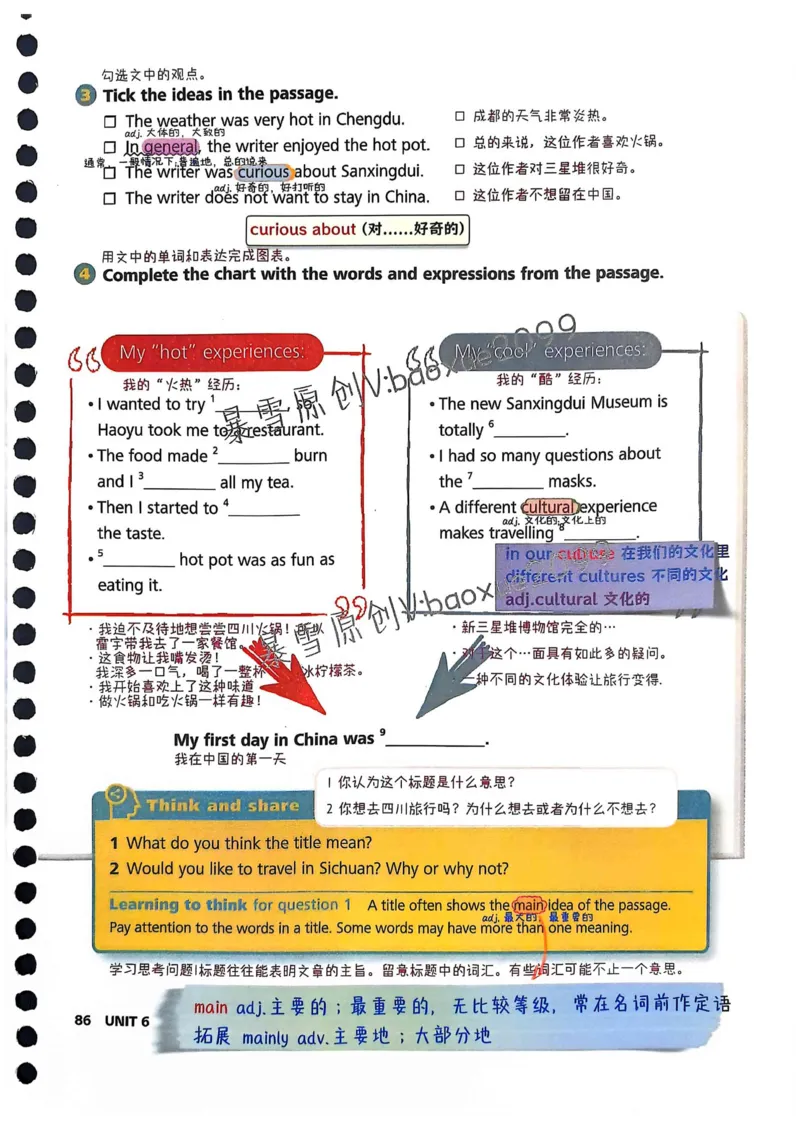 勾选文中的观点。
3 Tick the ideas in the passage.
□ The weather was very hot in Chengdu.
□ 成都的天气非常炎热。
adj. 大体的，大致的
□ In general, the writer enjoyed the hot pot.
□ 总的来说，这位作者喜欢火锅。
通常，一般情况下；普遍地，总的说来
□ The writer was curious about Sanxingdui.
□ 这位作者对三星堆很好奇。
adj. 好奇的，好打听的
□ The writer does not want to stay in China.
□ 这位作者不想留在中国。
curious about (对……好奇的)
用文中的单词和表达完成图表。
4 Complete the chart with the words and expressions from the passage.
My “hot” experiences:
我的“火热”经历：
• I wanted to try 1________ so
Haoyu took me to a restaurant.
• The food made 2________ burn
and I 3________ all my tea.
• Then I started to 4________
the taste.
• 5________ hot pot was as fun as
eating it.
My “cool” experiences:
我的“酷”经历：
• The new Sanxingdui Museum is
totally 6________.
• I had so many questions about
the 7________ masks.
• A different cultural experience
adj. 文化的；文化上的
makes travelling 8________.
in our culture 在我们的文化里
different cultures 不同的文化
adj.cultural 文化的
暴雪原创V:baoxue2099
暴雪原创V:baoxue2099
· 我迫不及待地想尝尝四川火锅！所以
霍宇带我去了一家餐馆。
· 这食物让我嘴发烫！
我深多一口气，喝了一整杯冰柠檬茶。
· 我开始喜欢上了这种味道
· 做火锅和吃火锅一样有趣！
· 新三星堆博物馆完全的…
· 对于这个…面具有如此多的疑问。
· 一种不同的文化体验让旅行变得.
My first day in China was 9________.
我在中国的第一天
1 你认为这个标题是什么意思？
2 你想去四川旅行吗？为什么想去或者为什么不想去？
Think and share
1 What do you think the title mean?
2 Would you like to travel in Sichuan? Why or why not?
Learning to think for question 1 A title often shows the main idea of the passage.
adj. 最大的，最重要的
Pay attention to the words in a title. Some words may have more than one meaning.
学习思考问题1标题往往能表明文章的主旨。留意标题中的词汇。有些词汇可能不止一个意思。
main adj.主要的；最重要的，无比较等级，常在名词前作定语
拓展 mainly adv.主要地；大部分地
86 UNIT 6